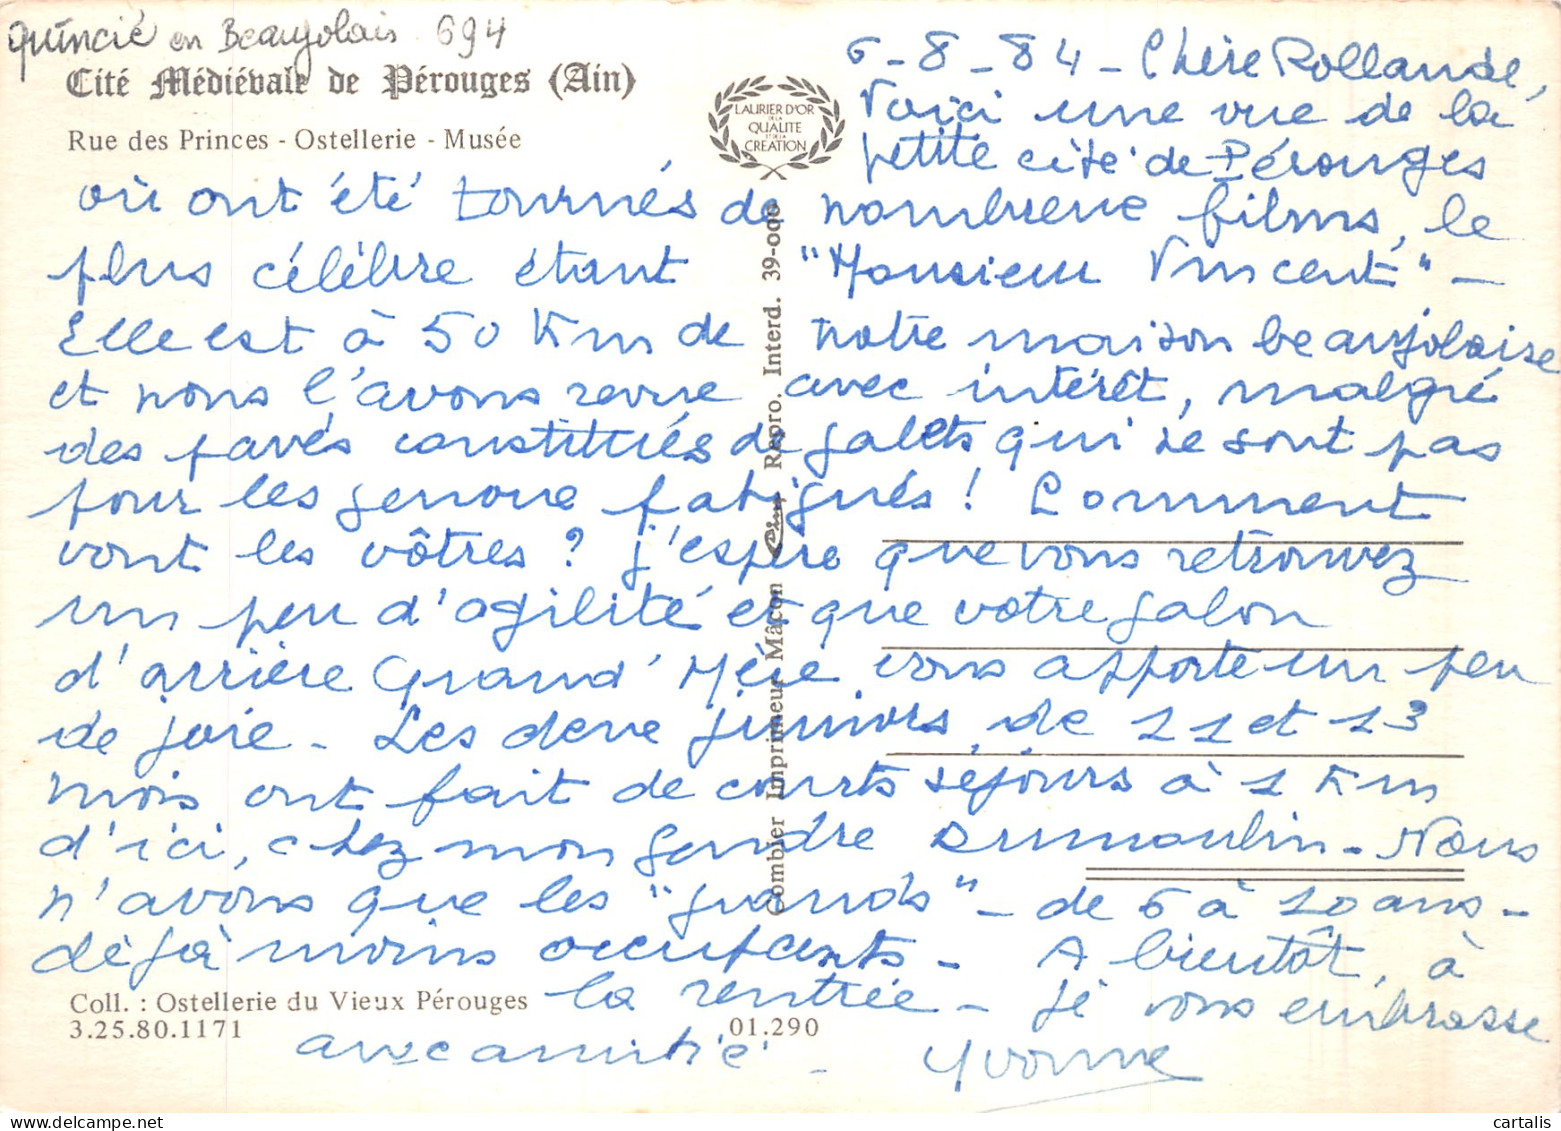 Quincié en Beaujolais 694
Cité Médiévale de Pérouges (Ain)
Rue des Princes - Ostellerie - Musée
LAURIER D'OR
DE LA
QUALITE
ET DE LA
CREATION
6-8-84 - Chère Rollande,
Voici une vue de la
petite cité de Pérouges
où ont été tournés de nombreux films, le
plus célèbre étant "Monsieur Vincent" -
Elle est à 50 Km de notre maison beaujolaise
et nous l'avons revue avec intérêt, malgré
des pavés constitués de galets qui ne sont pas
pour les genoux fatigués ! Comment
vont les vôtres ? J'espère que vous retrouvez
un peu d'agilité et que votre galon
d'arrière Grand' Mère vous apporte un peu
de joie - Les deux juniors de 11 et 13
mois ont fait de courts séjours à 1 Km
d'ici, chez mon gendre Dumoulin - Nous
n'avons que les "grands" - de 6 à 10 ans -
déjà moins occupants - A bientôt, à
la rentrée - Je vous embrasse
avec amitié - Yvonne
Combier Imprimeur Mâcon Cim Repro. Interd. 39-090
Coll. : Ostellerie du Vieux Pérouges
3.25.80.1171
01.290
cartalis